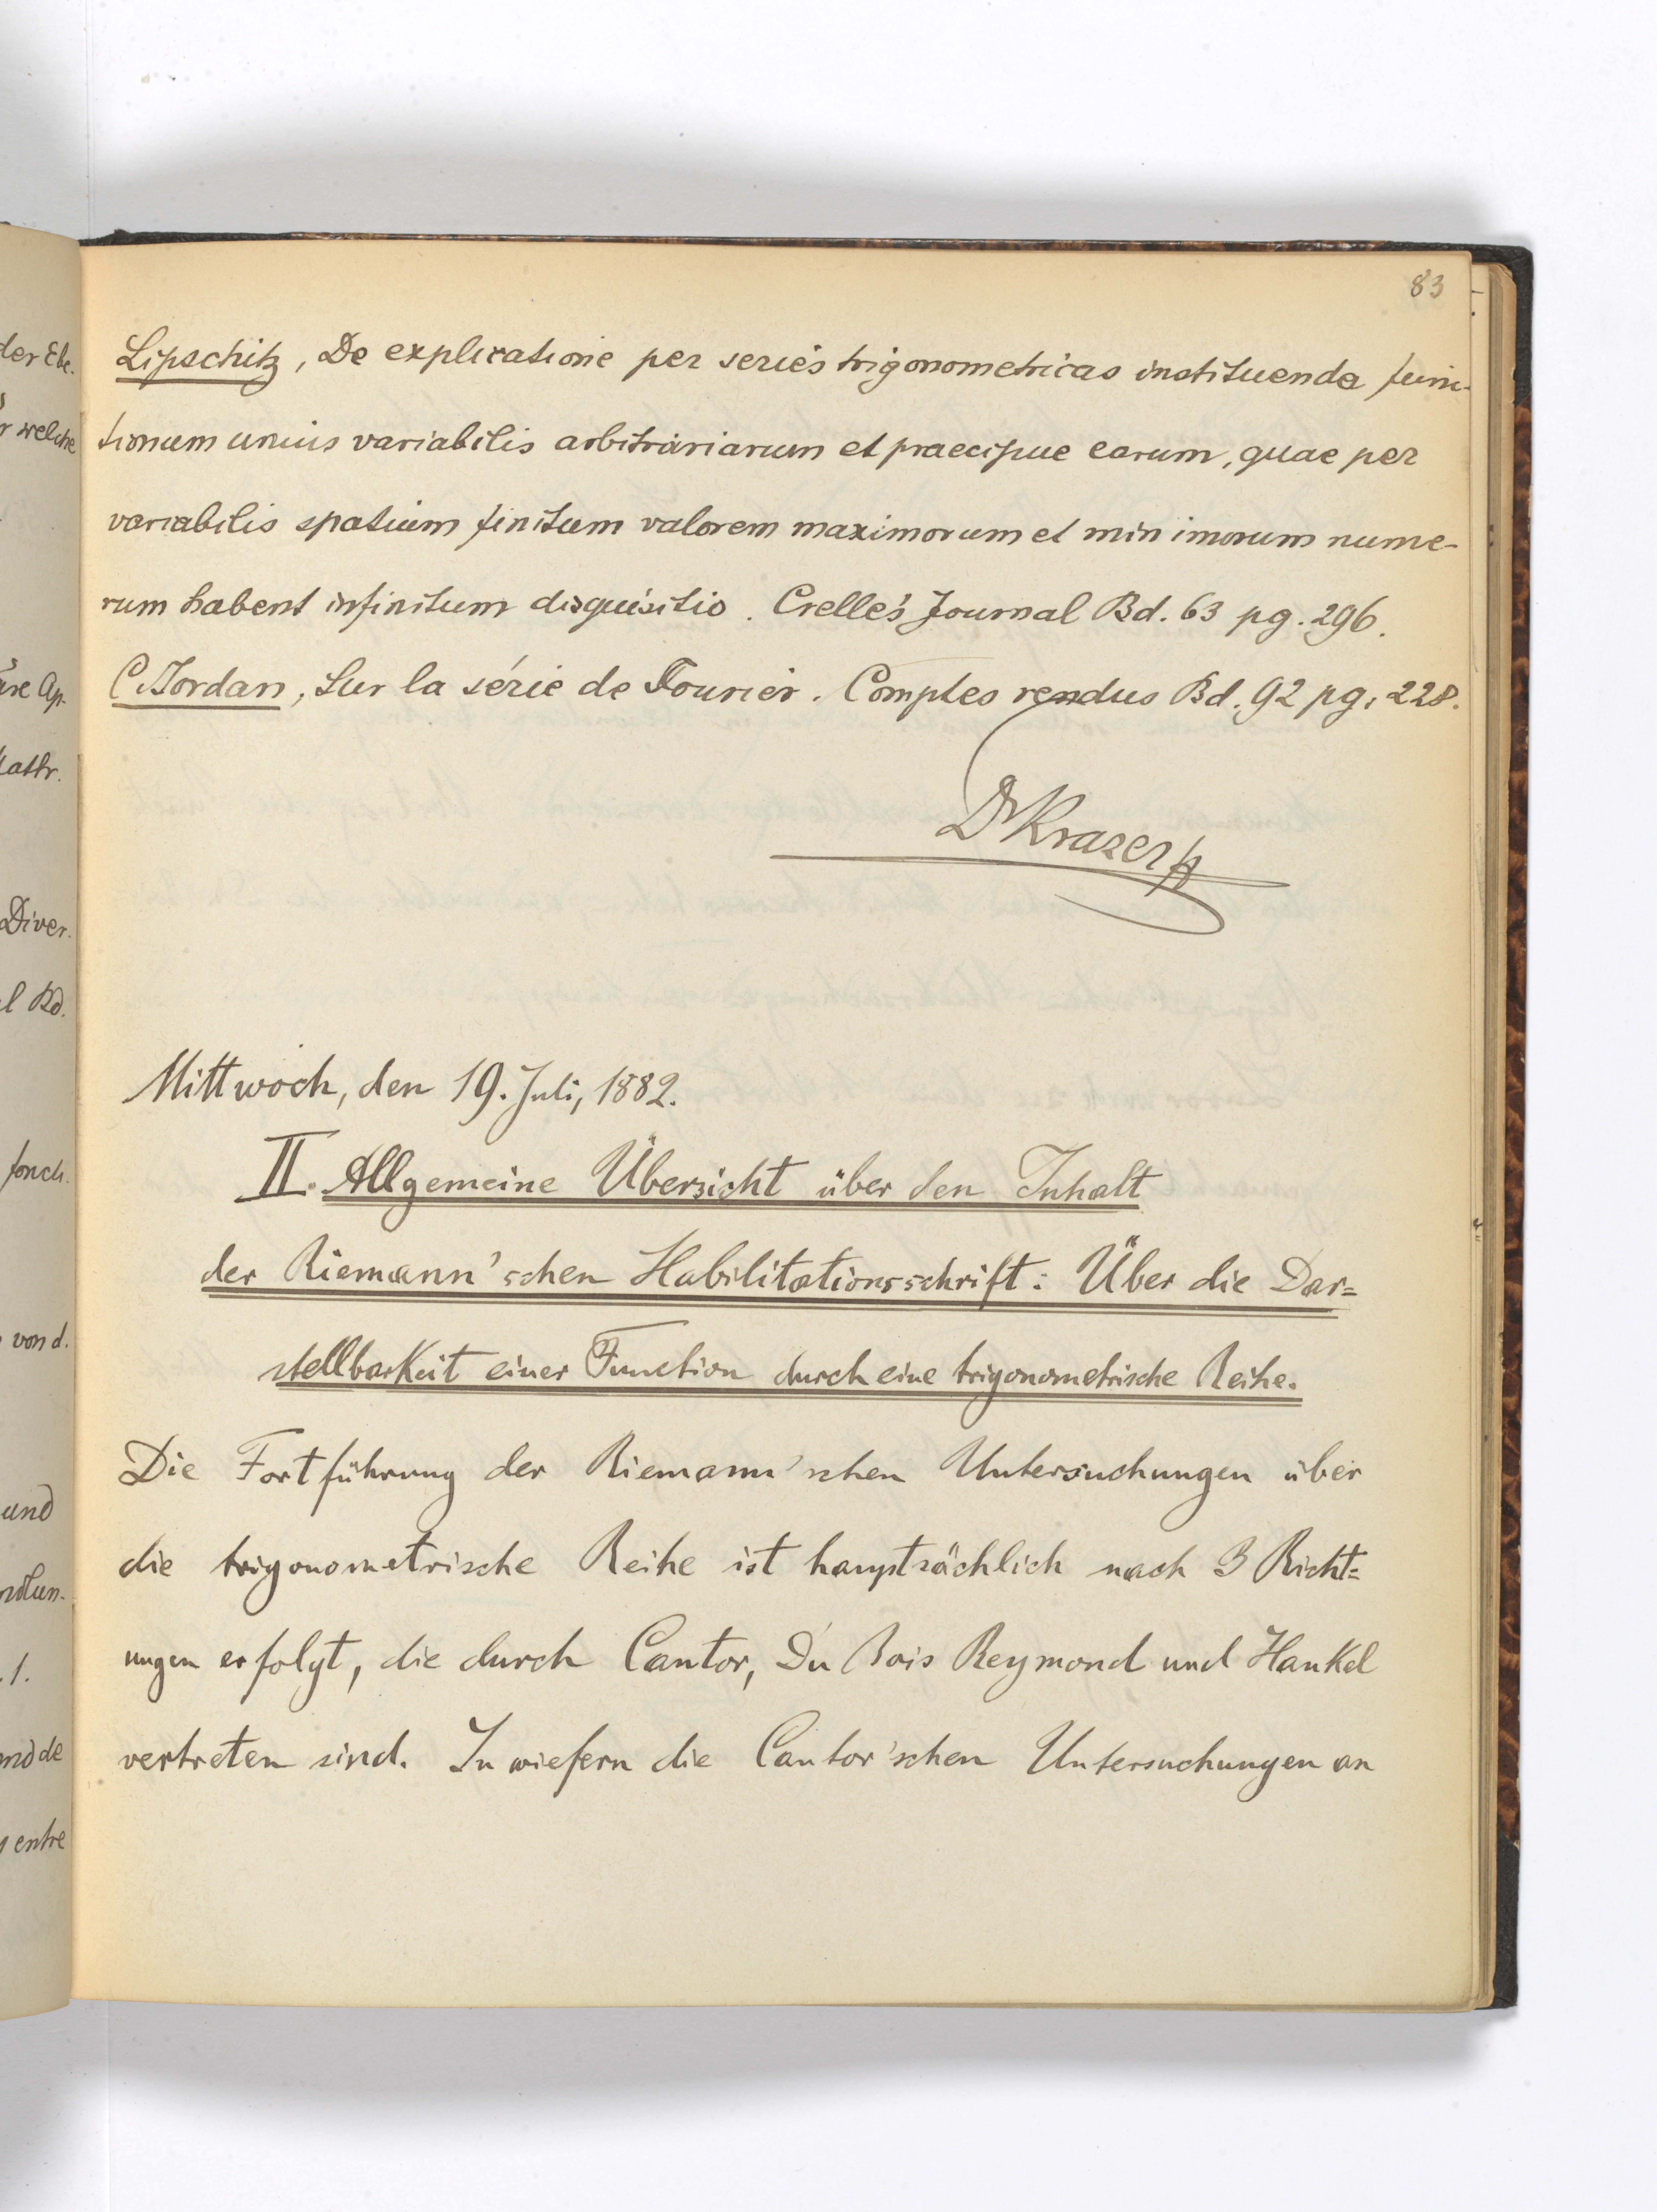 83
Lipschitz, De explicatione per series trigonometricas instituenda func-
tionum unius variabilis arbitrariarum et praecipue earum, quae per
variabilis spatium finitum valorem maximorum et minimorum nume-
rum habent infinitum disquisitio. Crelle's Journal Bd. 63 pg. 296.
C. Jordan, Sur la série de Fourier. Comptes rendus Bd. 92 pg. 228.
Dr Krazer
Mittwoch, den 19. Juli, 1882.
II. Allgemeine Übersicht über den Inhalt
der Riemann'schen Habilitationsschrift: Über die Dar=
stellbarkeit einer Function durch eine trigonometrische Reihe.
Die Fortführung der Riemann'schen Untersuchungen über
die trigonometrische Reihe ist hauptsächlich nach 3 Richt=
ungen erfolgt, die durch Cantor, Du Bois Reymond und Hankel
vertreten sind. In wiefern die Cantor'schen Untersuchungen an
der Ebe.
welche
Diver.
Bd.
von d.
und
1.
entre